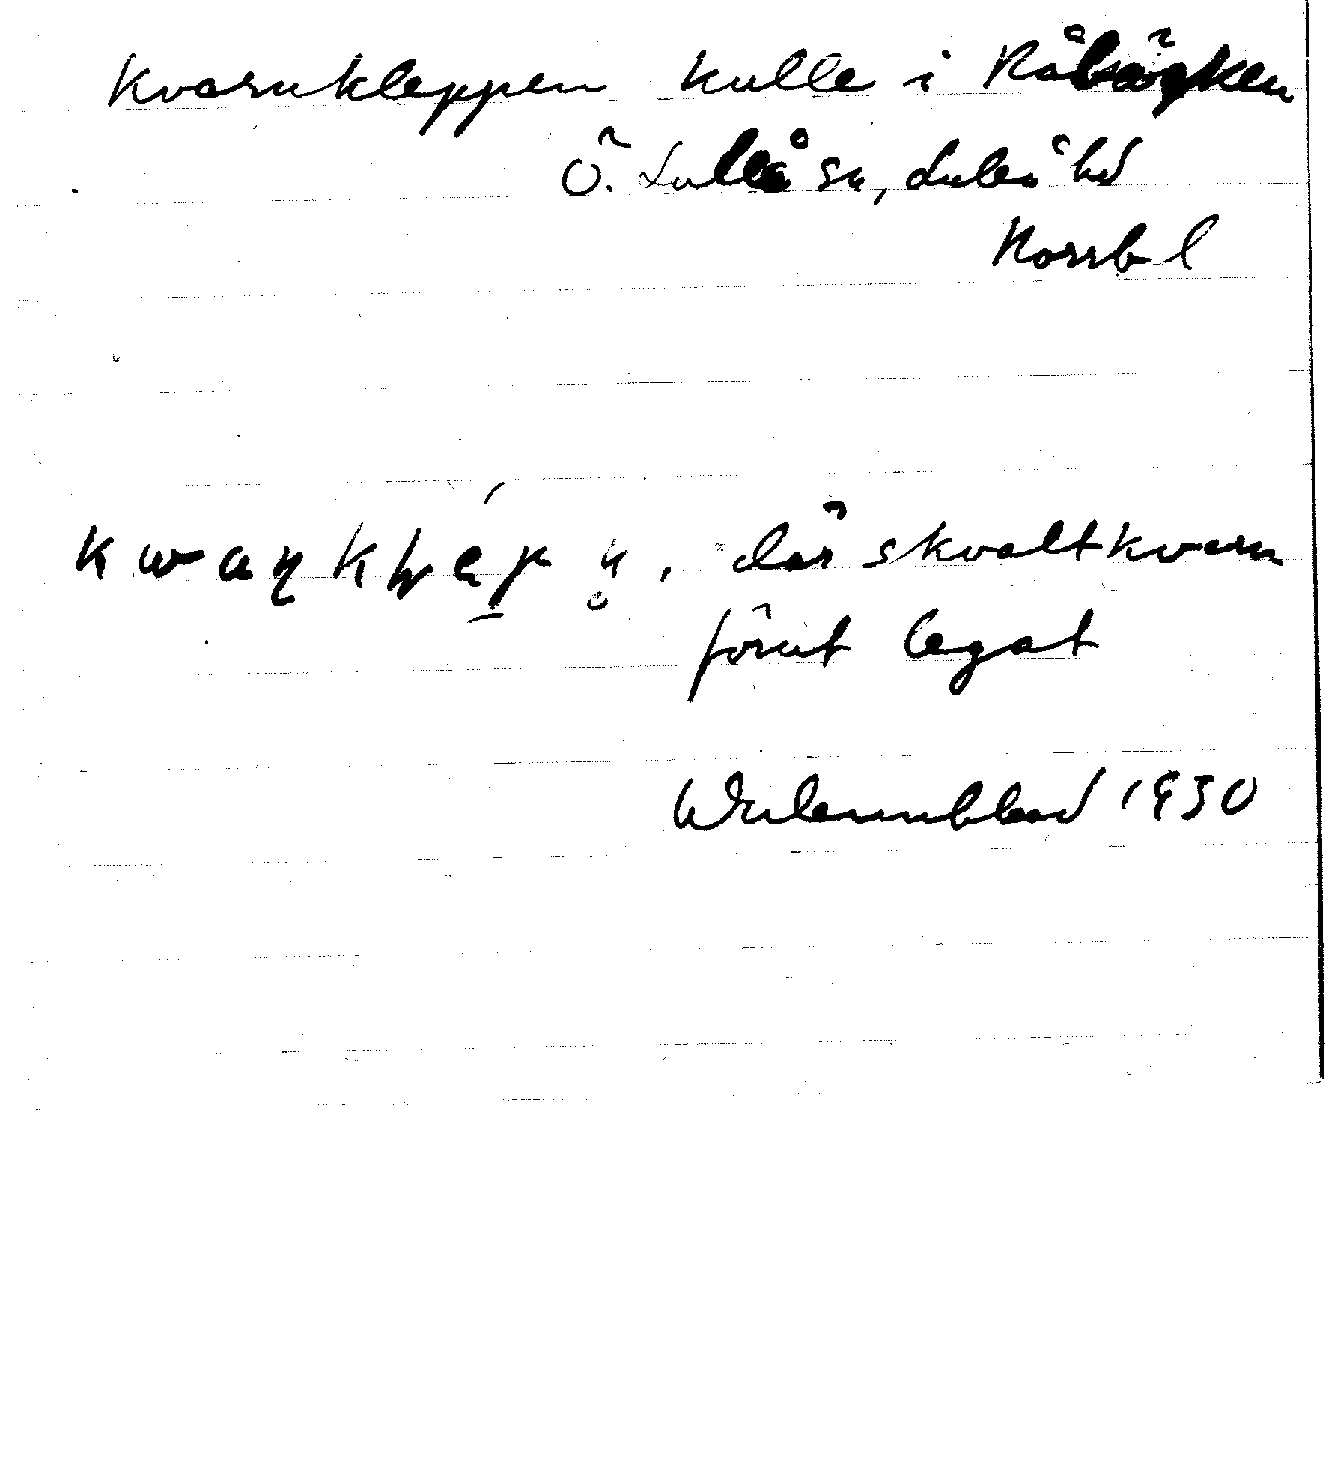 Kvarnkleppen kulle i Råbäcken
Ö. Luleå sn, Luleå hd
Norrb l
där skvaltkvarn
förut legat
Wullennblad 1930